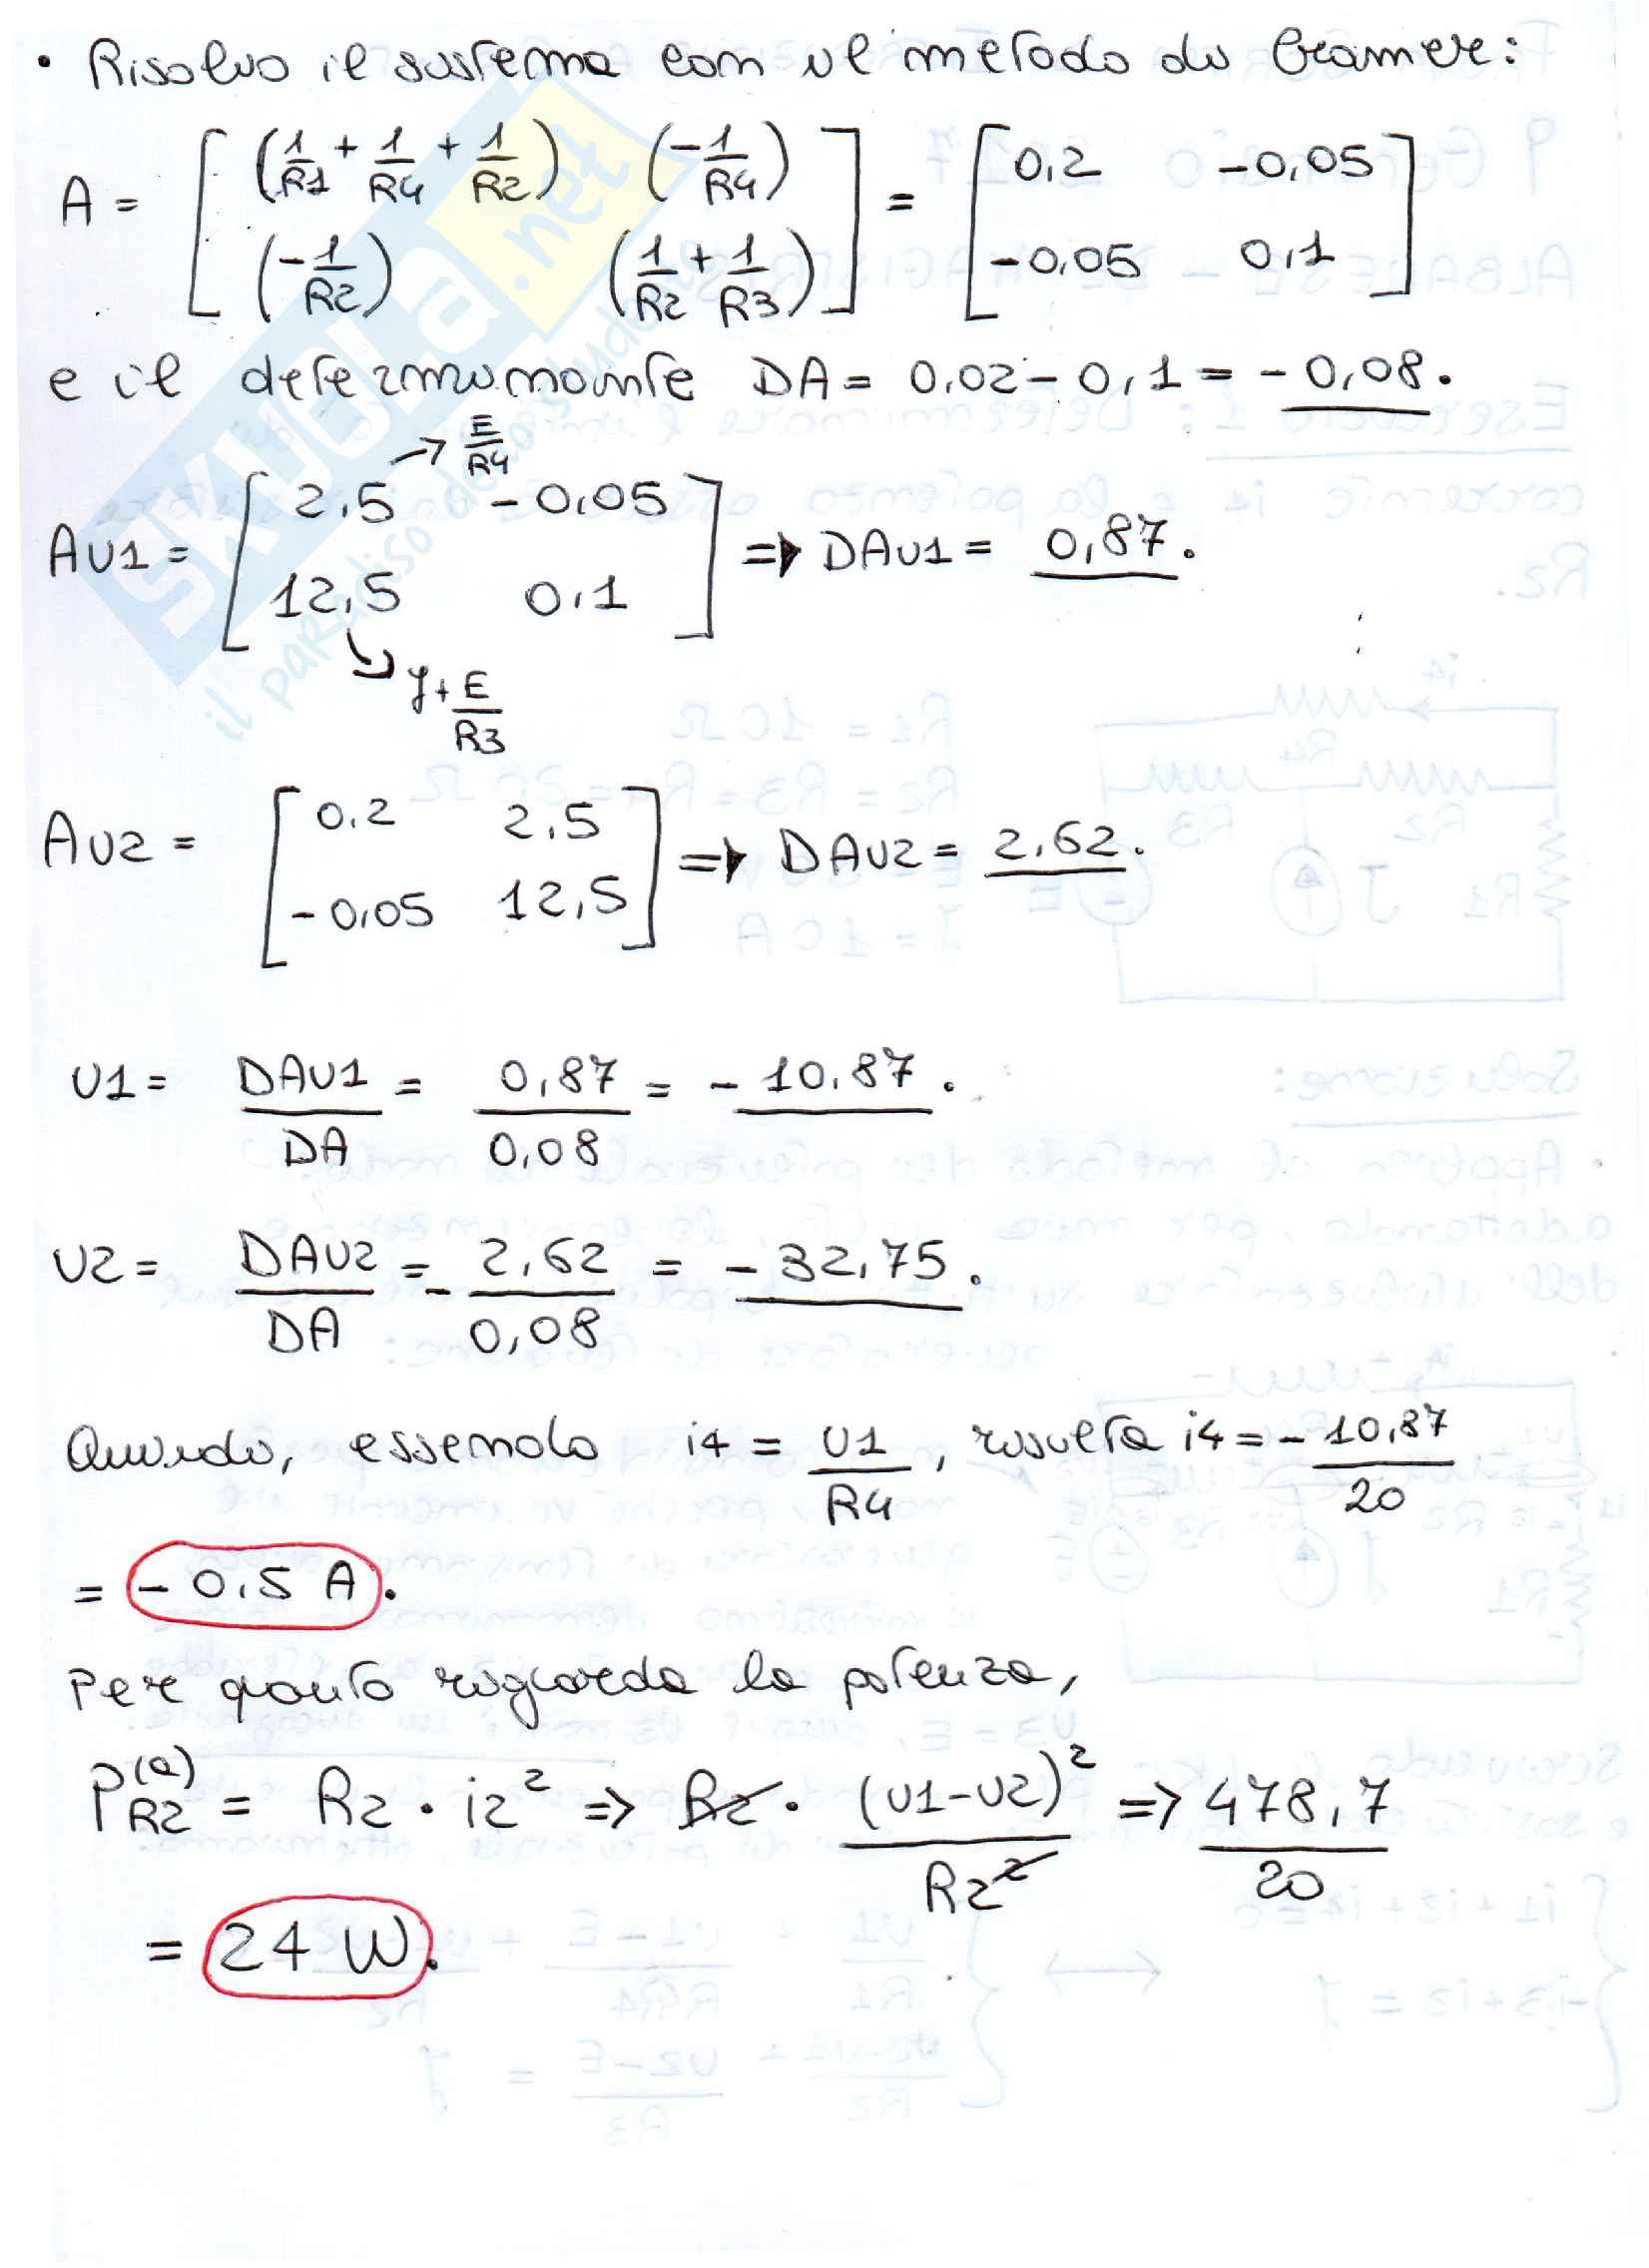 • Risolvo il sistema con il metodo di Cramer:
A = [ (1/R1 + 1/R4 + 1/R2) (-1/R4) ; (-1/R2) (1/R2 + 1/R3) ] = [ 0,2 -0,05 ; -0,05 0,1 ]
e il determinante DA = 0,02 - 0,1 = - 0,08.
→ E/R4
AU1 = [ 2,5 -0,05 ; 12,5 0,1 ] ⇒ DAU1 = 0,87.
J + E/R3
AU2 = [ 0,2 2,5 ; -0,05 12,5 ] ⇒ DAU2 = 2,62.
U1 = DAU1/DA = 0,87/0,08 = - 10,87.
U2 = DAU2/DA = - 2,62/0,08 = - 32,75.
Quindi, essendo i4 = U1/R4, risulta i4 = - 10,87/20
= - 0,5 A.
Per quanto riguarda la potenza,
P(a)R2 = R2 · i2² ⇒ R2 · (U1-U2)²/R2² ⇒ 478,7/20
= 24 W.
SKUOLA.net
il paradiso dello studente